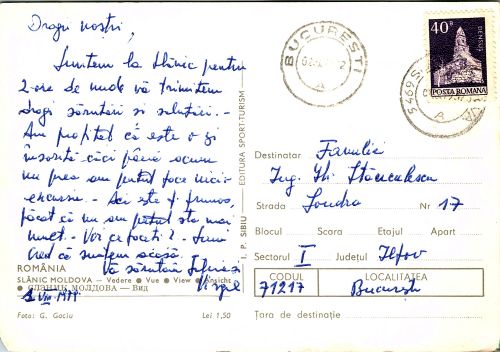 Dragii noștri,
Suntem la Slănic pentru
2 ore de unde vă trimitem
dragi sărutări și salutări. -
Am profitat că este o zi
însorită căci până acum
nu prea am putut face nici o
excursie. - Aici este f. frumos,
păcat că nu am putut sta mai
mult. - Voi ce faceți? - Luni
cred că suntem acasă.
Vă sărutăm
Virgil
ROMÂNIA
SLĂNIC MOLDOVA — Vedere ● Vue ● View ● Ansicht
● СЛЭНИК МОЛДОВА — Вид
VIII 1977
Foto: G. Gociu Lei 1,50
I. P. SIBIU — EDITURA SPORT-TURISM
BUCUREȘTI
A
40B
DENSUȘ
POSTA ROMANA
5469 S
A
Destinatar Familia
Ing. Gh. Stănculescu
Strada Londra Nr 17
Blocul Scara Etajul Apart
Sectorul I Județul Ilfov
CODUL LOCALITATEA
71217 București
Țara de destinație